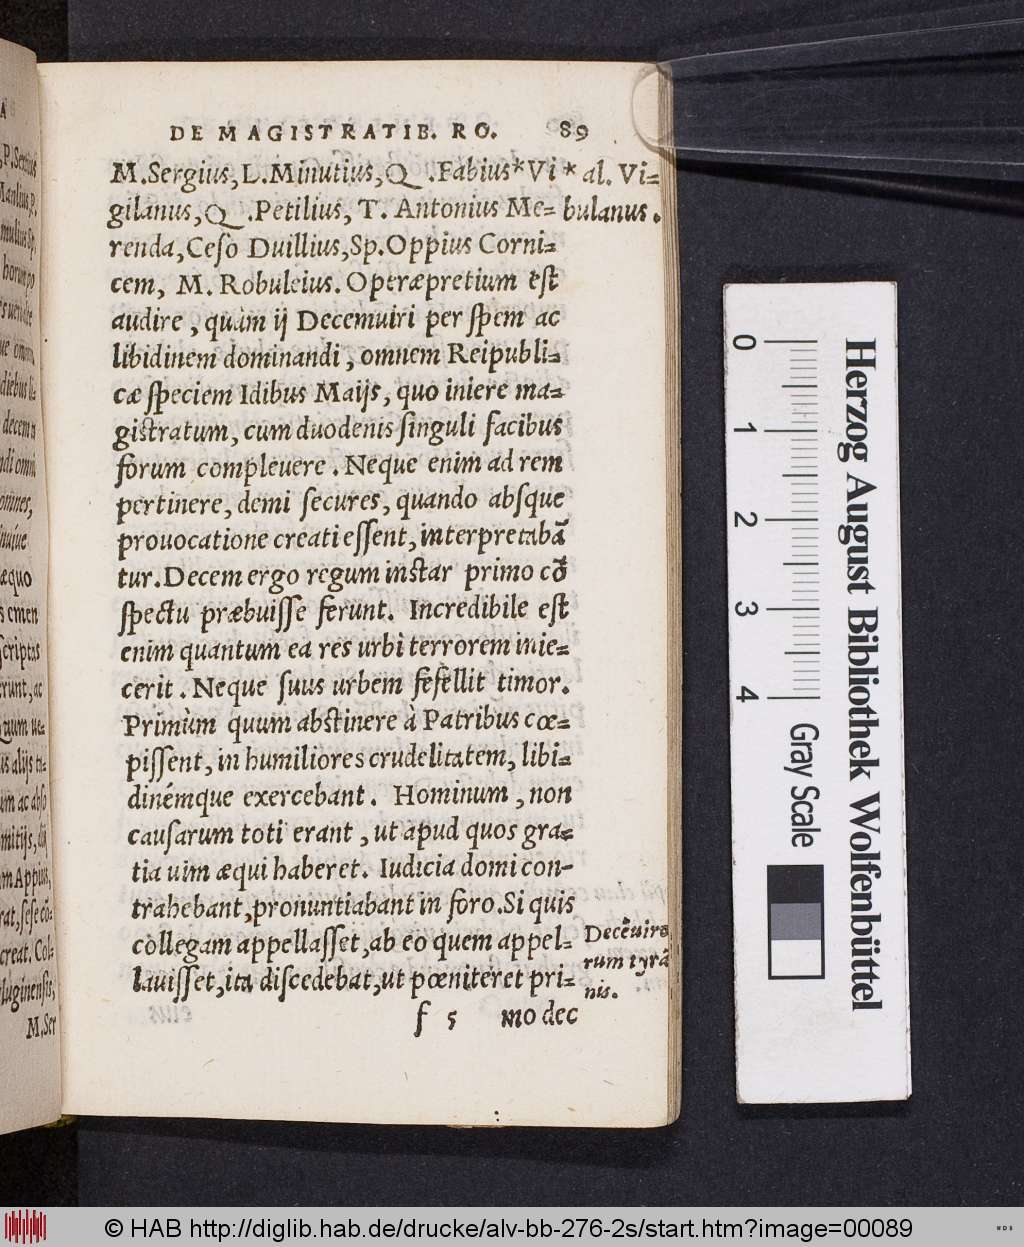 DE MAGISTRATIB. RO. 89
M. Sergius, L. Minutius, Q. Fabius* Vi
gilanus, Q. Petilius, T. Antonius Me=
renda, Ceſo Duillius, Sp. Oppius Corni=
cem, M. Robuleius. Operæpretium eſt
audire, quàm ij Decemuiri per ſpem ac
libidinem dominandi, omnem Reipubli=
cæ ſpeciem Idibus Maijs, quo iniere ma=
giſtratum, cum duodenis ſinguli facibus
forum compleuere. Neque enim ad rem
pertinere, demi ſecures, quando abſque
prouocatione creati eſſent, interpretabã
tur. Decem ergo regum inſtar primo cõ
ſpectu præbuiſſe ferunt. Incredibile eſt
enim quantum ea res urbi terrorem inie=
cerit. Neque ſuus urbem fefellit timor.
Primùm quum abſtinere à Patribus cœ=
piſſent, in humiliores crudelitatem, libi=
dinémque exercebant. Hominum, non
cauſarum toti erant, ut apud quos gra=
tia uim æqui haberet. Iudicia domi con-
trahebant, pronuntiabant in foro. Si quis
collegam appellaſſet, ab eo quem appel=
lauiſſet, ita diſcedebat, ut pœniteret pri=
f 5 mo dec
* al. Vi=
bulanus.
Decẽuiro
rum tyrã
nis.
P. Sextius
horum po
diebus li=
decem ta
æquo
ſcriptas
M. Ser
Herzog August Bibliothek Wolfenbüttel
0 1 2 3 4
Gray Scale
© HAB http://diglib.hab.de/drucke/alv-bb-276-2s/start.htm?image=00089